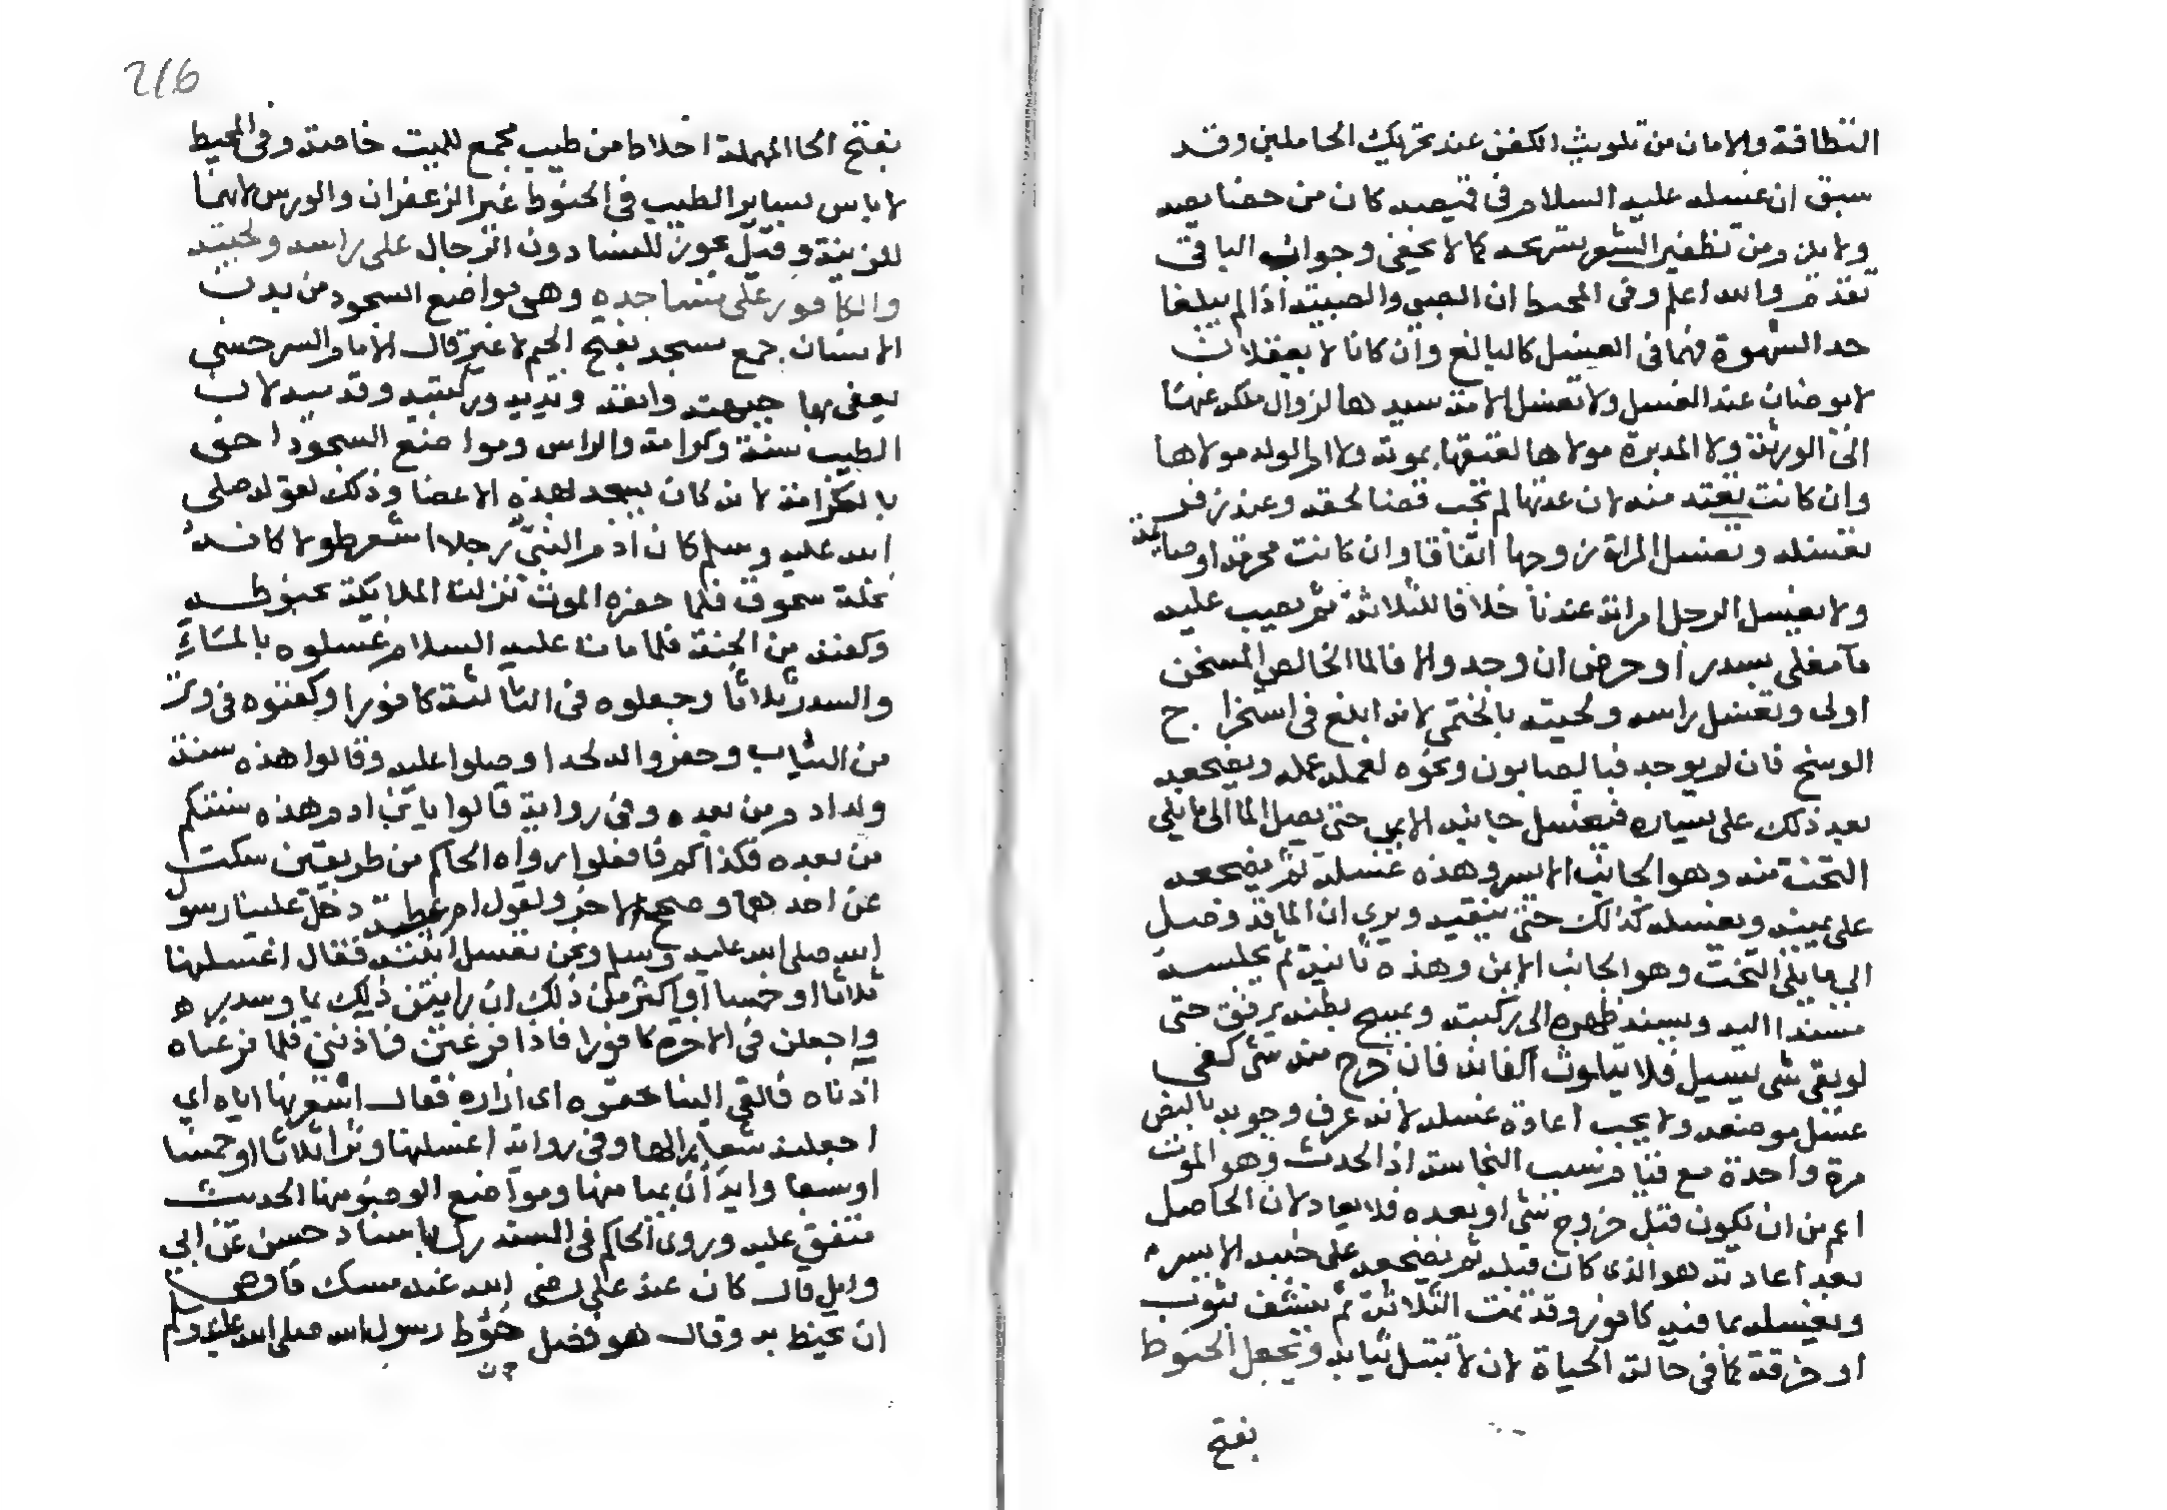 النظافة والامان من تلويث الكفن عند تحريك الحاملين وقد
سبق ان غسله عليه السلام في قميصه كان من خصايصه
ولا يلزم من تظفير الشعر تسريحه كما لا يخفى وجواب الباقي
تقدم والله اعلم وفي المحيط ان الصبي والصبية اذا لم يبلغا
حد الشهوة فهما في الغسل كالبالغ وان كانا لا يعقلان
لا يوضان عند الغسل ولا تغسل الامة سيدها لزوال ملكه عنها
الى الورثة ولا المدبرة مولاها لعتقها بموته ولا ام الولد مولاها
وان كانت تعتد منه لان عدتها لم تجب قضا لحقه وعند زفر
تغسله وتغسل المراة زوجها اتفاقا وان كانت محرمة او صايمة
ولا يغسل الرجل امراته عندنا خلافا للثلاثة ثم يصب عليه
ما مغلى بسدر او حرض ان وجد والا فالما الخالص المسخن
اولى وتغسل راسه ولحيته بالختمي لانه ابلغ في استخراج
الوسخ فان لم يوجد فبالصابون ونحوه لعمله عمله ويضجعه
بعد ذلك على يساره فيغسل جانبه الايمن حتى يصل الما الى ما يلي
التخت منه وهو الجانب الايسر وهذه غسلة ثم يضجعه
على يمينه ويغسله كذلك حتى ينقيه ويرى ان الما قد وصل
الى ما يلي التخت وهو الجانب الايمن وهذه ثانية ثم يجلسه
مسندا اليه ويسند ظهره الى ركبته ويمسح بطنه برفق حتى
لو بقي شي يسيل فلا يتلوث اكفانه فان خرج منه شي كفى
غسل موضعه ولا يجب اعادة غسله لانه عرف وجوبه بالنص
مرة واحدة مع قيام سبب النجاسة اذ الحدث وهو الموت
اعم من ان يكون قبل خروج شي او بعده فلا يعاد لان الحاصل
بعد اعادته هو الذي كان قبله ثم يضجعه على جنبه الايسر
ويغسله بما فيه كافور وقد تمت الثلاثة ثم ينشف بثوب
او خرقة كما في حالة الحياة لان لا تبتل ثيابه وتجعل الحنوط
بفتح
216
بفتح الحا المهملة اخلاط من طيب مجمع للميت خاصة وفي المحيط
لا باس بساير الطيب في الحنوط غير الزعفران والورس لانهما
للزينة وقيل يجوز للنسا دون الرجال على راسه ولحيته
والكافور على مساجده وهي مواضع السجود من بدن
الانسان جمع مسجد بفتح الجيم لا غير قال الامام السرخسي
يعني بها جبهته وانفه ويديه وركبتيه وقدميه لان
الطيب سنة وكرامة والراس ومواضع السجود احق
بالكرامة لانه كان يسجد لهذه الاعضا وذلك لقوله صلى
الله عليه وسلم كان ادم النبي رجلا اشعر طولا كانه
نخلة سحوق فلما حضره الموت نزلت الملايكة بحنوطه
وكفنه من الجنة فلما مات عليه السلام غسلوه بالماء
والسدر ثلاثا وجعلوه في الثالثة كافورا وكفنوه في وتر
من الثياب وحفروا له لحدا وصلوا عليه وقالوا هذه سنة
ولد ادم من بعده وفي رواية قالوا يا بني ادم هذه سنتكم
من بعده فكذاكم فافعلوا رواه الحاكم من طريقين سكت
عن احدهما وصحح الاخر ولقول ام عطية دخل علينا رسول
الله صلى الله عليه وسلم ونحن نغسل ابنته فقال اغسلنها
ثلاثا او خمسا او اكثر من ذلك ان رايتن ذلك بما وسدر
واجعلن في الاخرة كافورا فاذا فرغتن فاذنني فلما فرغناه
اذناه فالقى الينا حقوه اي ازاره فقال اشعرنها اياه اي
اجعلنه شعارا لها وفي رواية اغسلنها وترا ثلاثا او خمسا
او سبعا وابدان بميامنها ومواضع الوضو منها الحديث
متفق عليه وروى الحاكم في المستدرك باسناد حسن عن ابي
وايل قال كان عند علي رضي الله عنه مسك فاوصى
ان يحنط به وقال هو فضل حنوط رسول الله صلى الله عليه وسلم